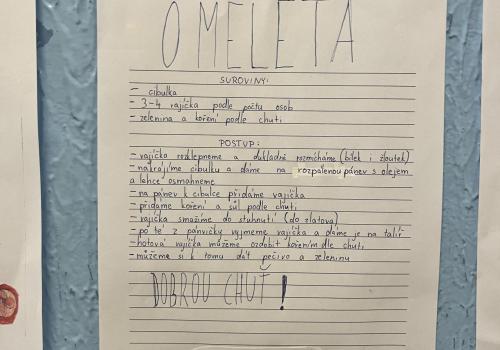 OMELETA
SUROVINY:
- cibulka
- 3-4 vajíčka podle počtu osob
- zelenina a koření podle chuti
POSTUP:
- vajíčka rozklepneme a důkladně rozmícháme (bílek i žloutek)
- nakrájíme cibulku a dáme na rozpálenou pánev s olejem
a lehce osmahneme
- na pánev k cibulce přidáme vajíčka
- přidáme koření a sůl podle chuti
- vajíčka smažíme do stuhnutí (do zlatova)
- po té z pánvičky vyjmeme vajíčka a dáme je na talíř
- hotová vajíčka můžeme ozdobit kořením dle chuti
- můžeme si k tomu dát pečivo a zeleninu
DOBROU CHUŤ!